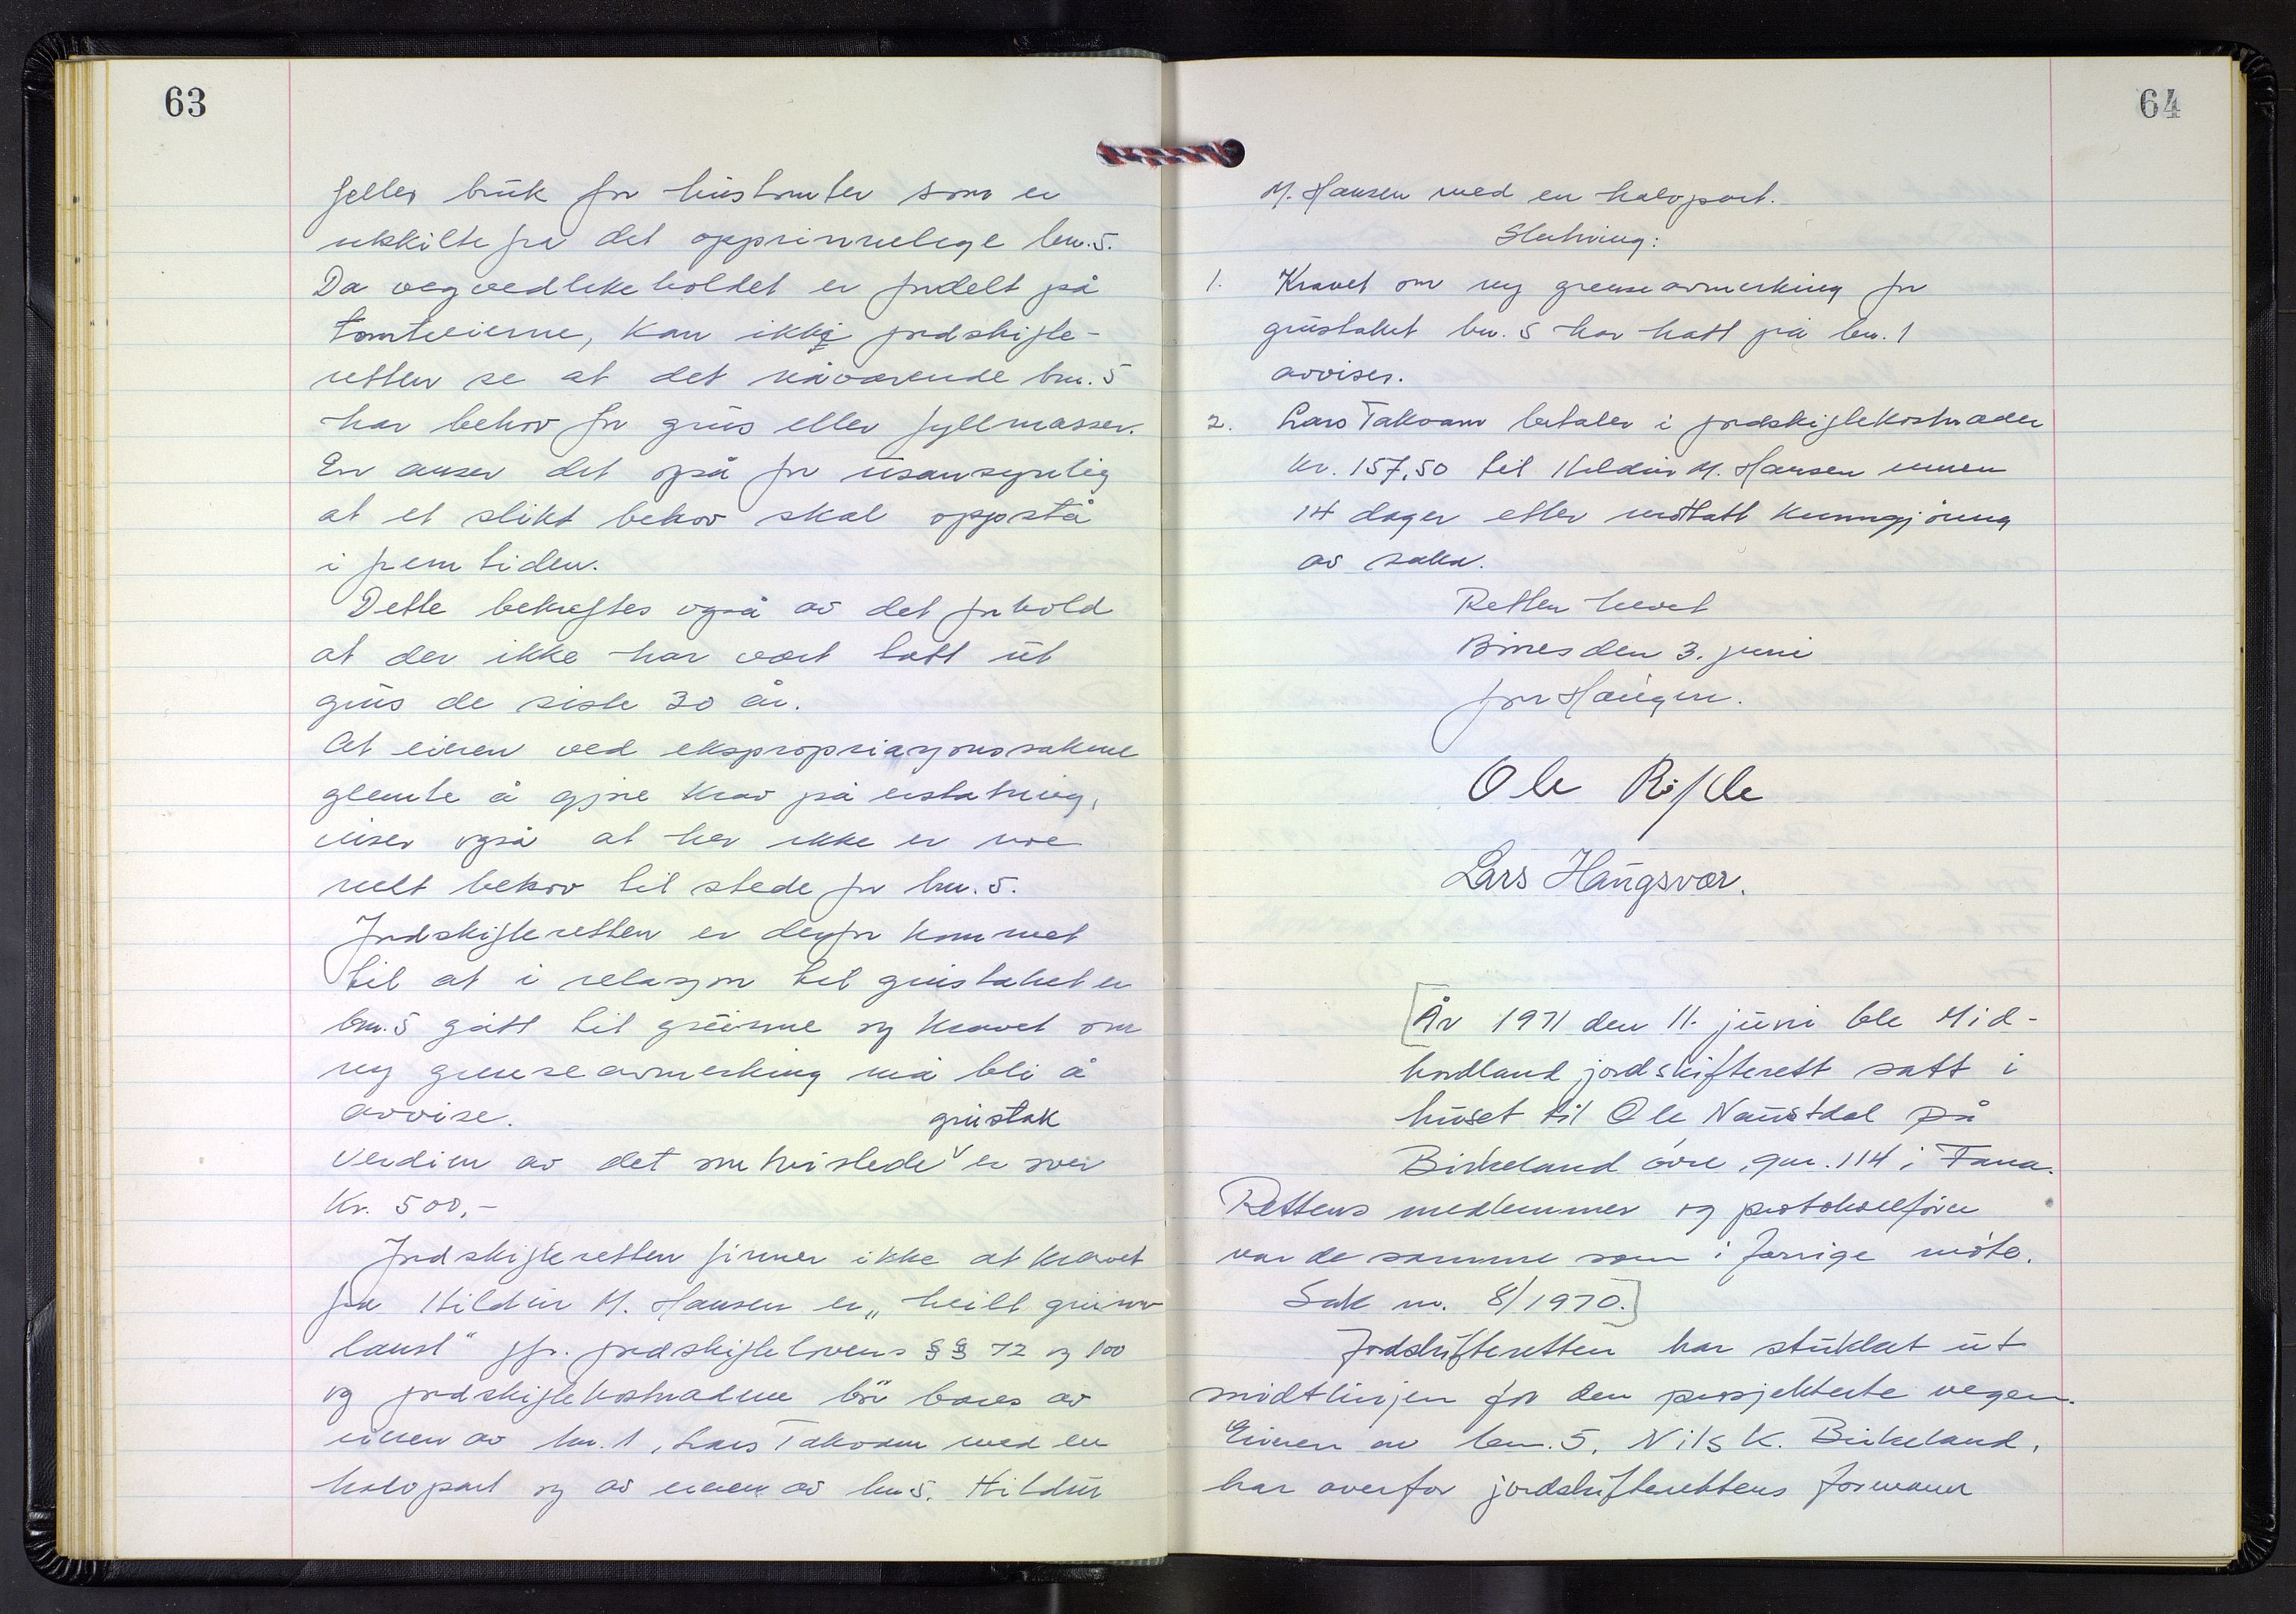 63
felles bruk for hustomter som er
utskilte fra det opprinnelege bnr. 5.
Da vegvedlikeholdet er fordelt på
tomteeierne, kan ikke jordskifte-
retten se at det nåværende bnr. 5
har behov for grus eller fyllmasser.
En anser det også for usansynlig
at et slikt behov skal oppstå
i fremtiden.
Dette bekreftes også av det forhold
at der ikke har vært tatt ut
grus de siste 30 år.
At eieren ved ekspropriasjonssakene
glemte å gjøre krav på erstatning,
viser også at her ikke er noe
reelt behov til stede for bnr. 5.
Jordskifteretten er derfor kommet
til at i relasjon til grustaket er
bnr. 5 gått til grunne og kravet om
ny grenseavmerking må bli å
avvise.
grustak
Verdien av det omtvistede v er over
Kr. 500,-
Jordskifteretten finner ikke at kravet
fra Hildur M. Hansen er „heilt grunn-
laust" jfr. jordskiftelovens §§ 72 og 100
og jordskiftekostnadene bör bæres av
eieren av bnr. 1, Lars Takvam med en
halvpart og av eieren av bnr 5. Hildur
64
M. Hansen med en halvpart.
Slutning:
1. Kravet om ny grenseavmerking for
grustaket bnr. 5 har hatt på bnr. 1
avvises.
2. Lars Takvam betaler i jordskiftekostnader
kr. 157,50 til Hildur M. Hansen innen
14 dager etter mottatt kunngjøring
av saka.
Retten hevet
Birkenes den 3. juni
Jon Haugen.
Ole Rifsle
Lars Haugsvær.
[År 1971 den 11. juni ble Mid-
hordland jordskifterett satt i
huset til Ole Naustdal på
Birkeland övre, gnr. 114 i Fana.
Rettens medlemmer og protokollförer
var de samme som i forrige möte.
Sak nr. 8/1970.]
Jordskifteretten har stukket ut
midtlinjen for den prosjekterte vegen.
Eieren av bnr. 5, Nils K. Birkeland,
har overfor jordskifterettens formann